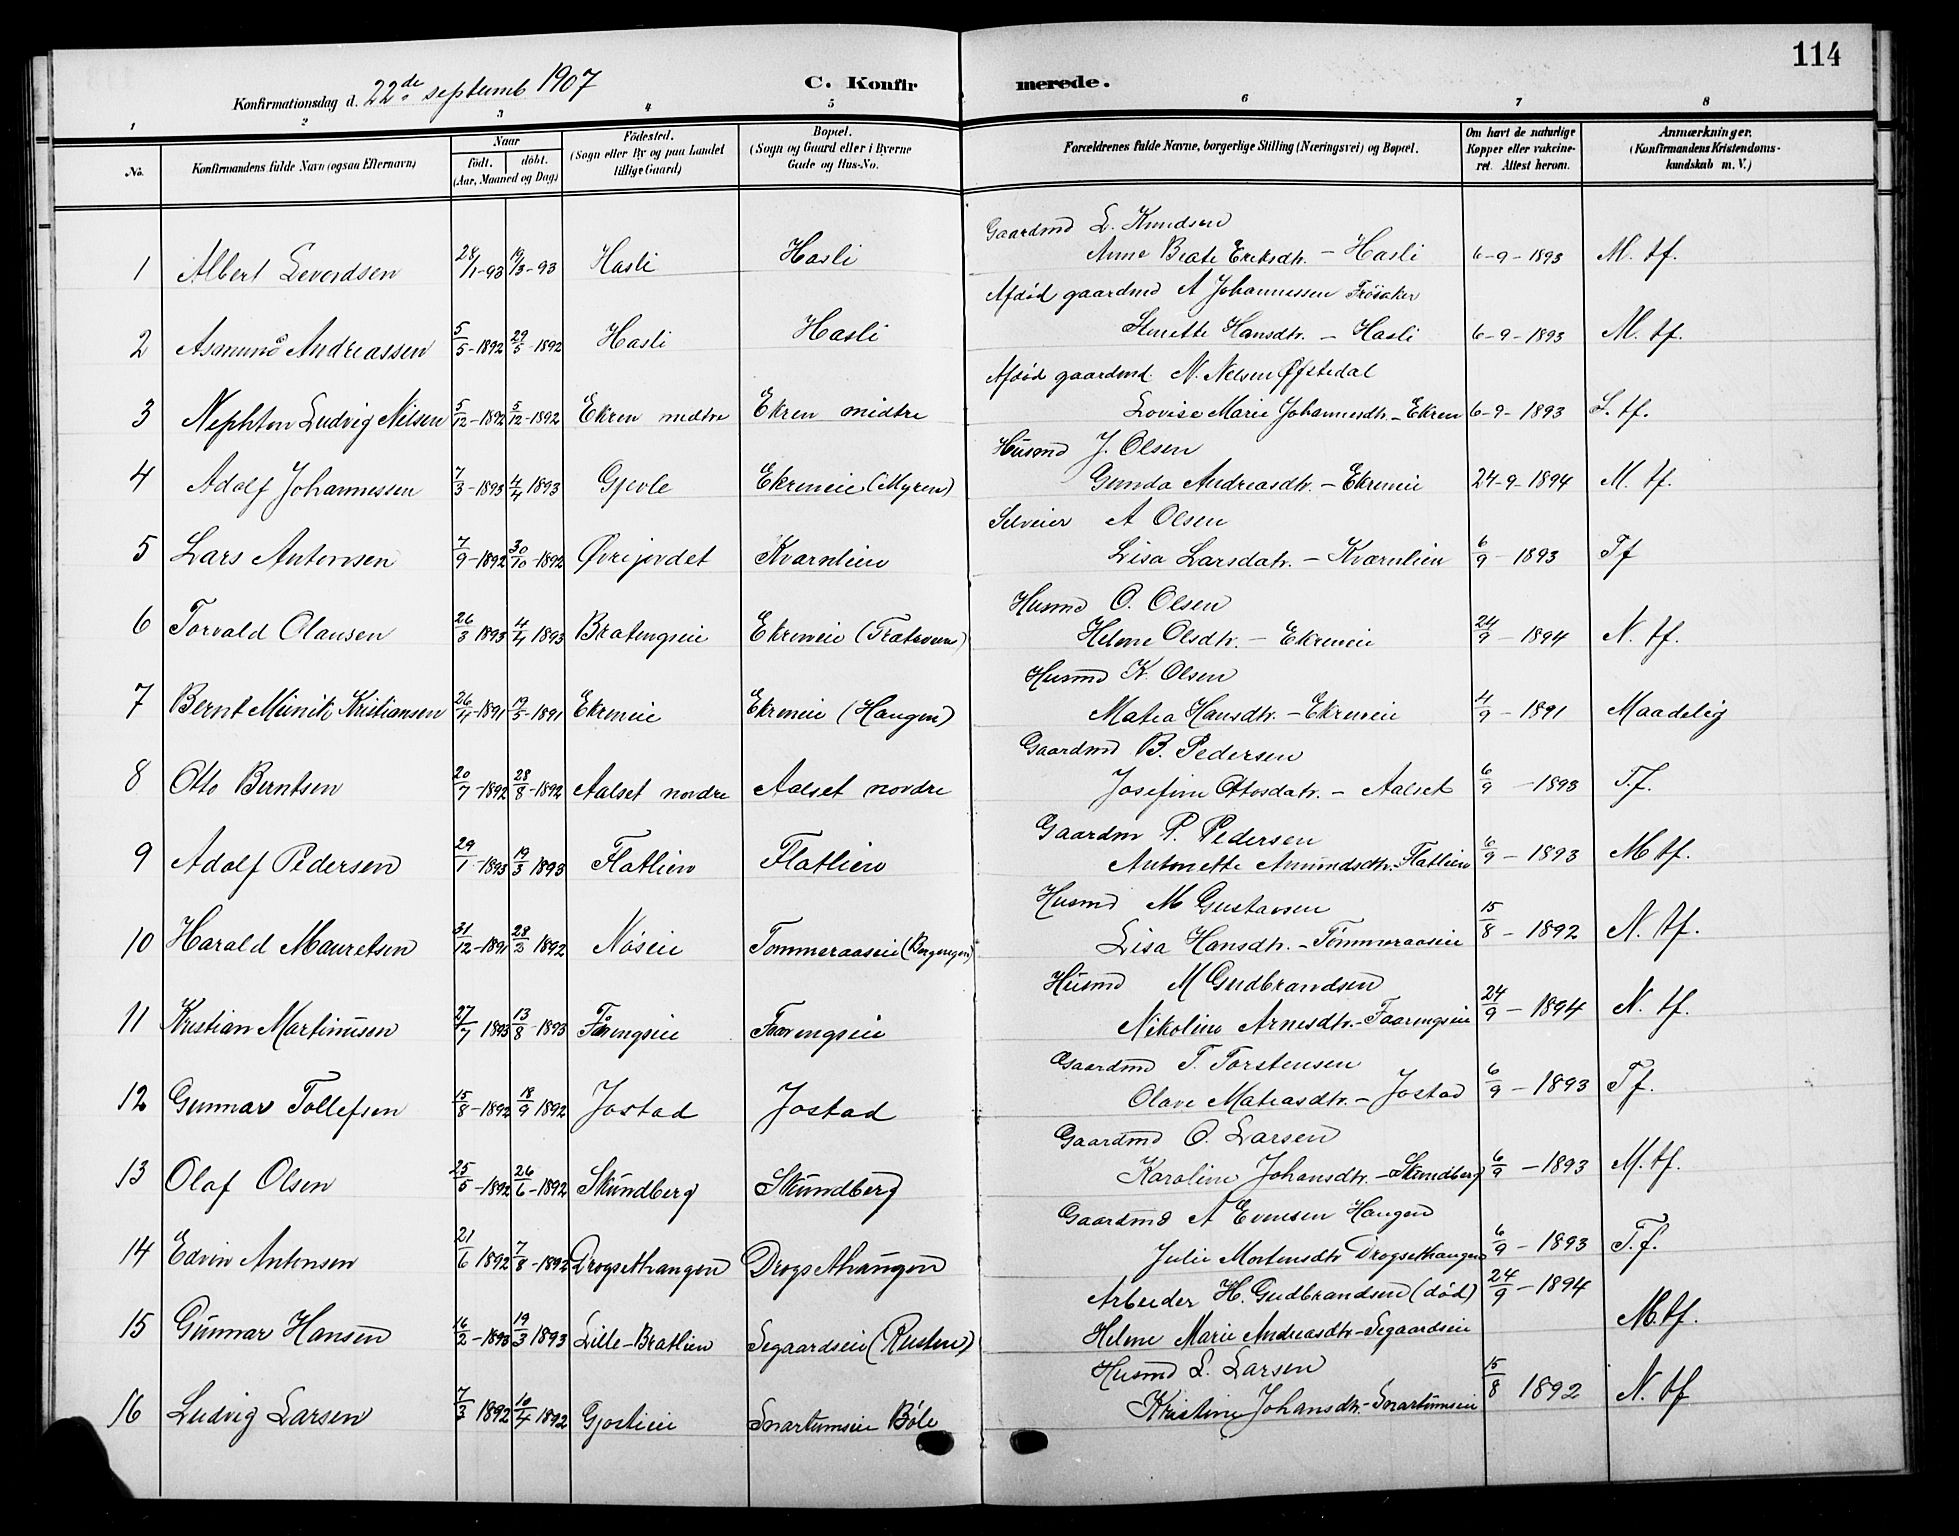 114
Konfirmationsdag d. 22de septemb 1907
C. Konfirmerede.
1 2 3 4 5 6 7 8
No.
Konfirmandens fulde Navn (ogsaa Efternavn)
Naar
født. døbt.
(Aar, Maaned og Dag)
Fødested.
(Sogn eller By og paa Landet
tillige Gaard)
Bopæl.
(Sogn og Gaard eller i Byerne
Gade og Hus-No.
Forældrenes fulde Navne, borgerlige Stilling (Næringsvei) og Bopæl.
Om havt de naturlige
Kopper eller vakcine-
ret. Attest herom.
Anmærkninger.
(Konfirmandens Kristendoms-
kundskab m. V.)
Gaardmd L. Knudsen
1 Albert Leverdsen 28/1-93 19/3-93 Hasli Hasli Anne Beate Eriksdtr. - Hasli 6-9-1893 M. tf.
Afdød gaardmd A Johannessen Frøsaker
2 Asmund Andreassen 5/5-1892 29/5-1892 Hasli Hasli Hansdtr. - Hasli 6-9-1893 M. tf.
Afdød gaardmd. N. Nelsen Øfstedal
3 Nephton Ludvig Nilsen 5/12-1892 5/12-1892 Ekren midtre Ekren midtre Lovise Marie Johannesdtr. - Ekren 6-9-1893 S. tf.
Husmd J. Olsen
4 Adolf Johannessen 7/3-1893 4/4 1893 Gjevle Ekreneie (Myren) Gunda Andreasdtr. - Ekreneie 24-9-1894 M. tf.
Selveier A Olsen
5 Lars Antonsen 7/9-1892 30/10-1892 Øvrejordet Kvarnlien Lisa Larsdatr. - Kvarnlien 6/9-1893 Tf
Husmd O. Olsen
6 Torvald Olausen 26/3 1893 4/4 1893 Bratengseie Ekreneie Helene Olsdtr. - Ekreneie 24/9-1894 N. tf.
Husmd K. Olsen
7 Bernt Meinik Kristiansen 26/4-1891 19/5-1891 Ekreneie Ekreneie (Haugen) Matea Hansdtr. - Ekreneie 4/9-1891 Maadelig
Gaardmd B. Pedersen
8 Otto Berntsen 20/7-1892 28/8-1892 Aalset nordre Aalset nordre Josefine Ottosdatr. - Aalset 6/9-1893 T.f.
Gaardm P. Pedersen
9 Adolf Pedersen 29/1-1893 19/3 1893 Flatlien Flatlien Antonette Amundsdtr. - Flatlien 6/9-1893 M tf.
Husmd M Gustavsen
10 Harald Mauretsen 31/12-1891 28/2 1892 Nøseie Tommeraaseie Lisa Hansdtr. - Tømmeraaseie 15/8-1892 N. tf.
Husmd M Gudbrandsen
11 Kristian Martinusen 27/7 1893 13/8-1893 Faarengseie Faarengseie Nikoline Arnesdtr. - Faarengseie 24/9-1894 N. tf.
Gaardmd T. Torstensen
12 Gunnar Tollefsen 15/8-1892 18/9 1892 Jostad Jostad Olave Mateasdtr. - Jostad 6/9-1893 T f.
Gaardmd O. Larsen
13 Olaf Olsen 25/5-1892 26/6-1892 Skundberg Skundberg Karoline Johansdtr. - Skundberg 6/9-1893 M. tf.
Gaardmd A Evensen Haugen
14 Edvin Antonsen 21/6 1892 7/8-1892 Drogsethaugen Drogsethaugen Julie Mortensdtr Drogsethaugen 6/9-1893 T.f.
Arbeider H. Gudbrandsen (død) 24/9-1894
15 Gunnar Hansen 16/2-1893 19/3 1893 Lille-Bratlien Segaardseie (Rusten) Helene Marie Andreasdtr. - Segaardseie M. tf.
Husmd L. Larsen
16 Ludvig Larsen 7/3 1892 10/4 1892 Gjøslieie Snartumseie Bøle Kristine Johansdtr. - Snartumseie 15/8 1892 N. tf